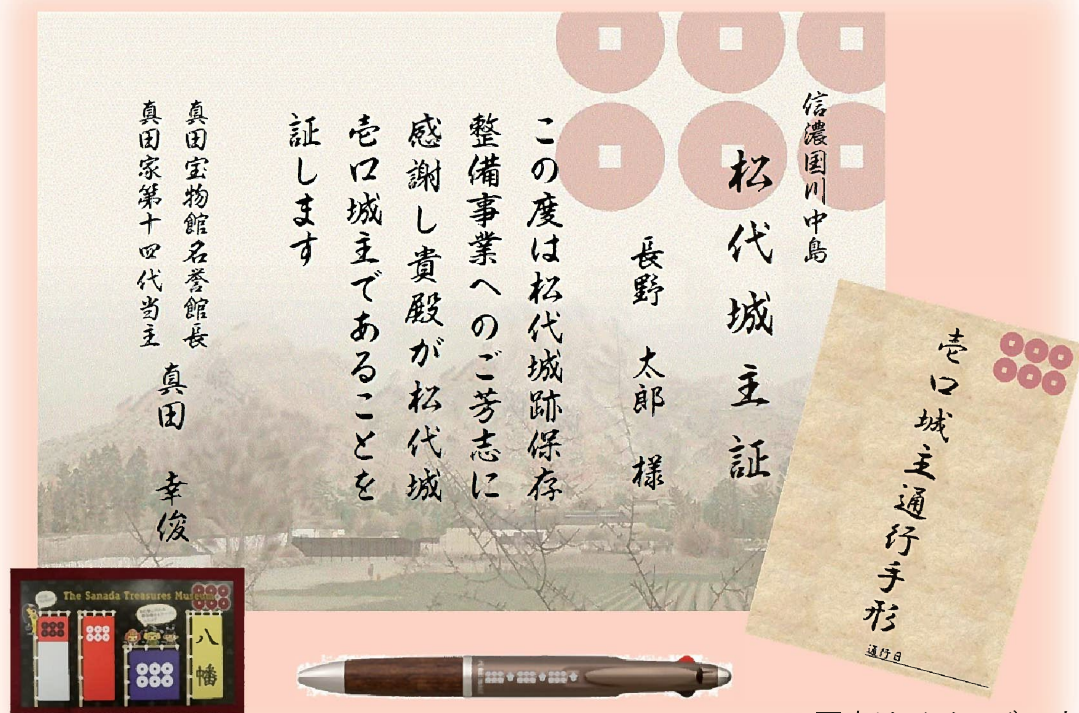 信濃国川中島
松代城主証
長野 太郎 様
この度は松代城跡保存
整備事業へのご芳志に
感謝し貴殿が松代城
壱口城主であることを
証します
真田宝物館名誉館長
真田家第十四代当主
真田 幸俊
壱口城主通行手形
通行日
The Sanada Treasures Museum
八幡